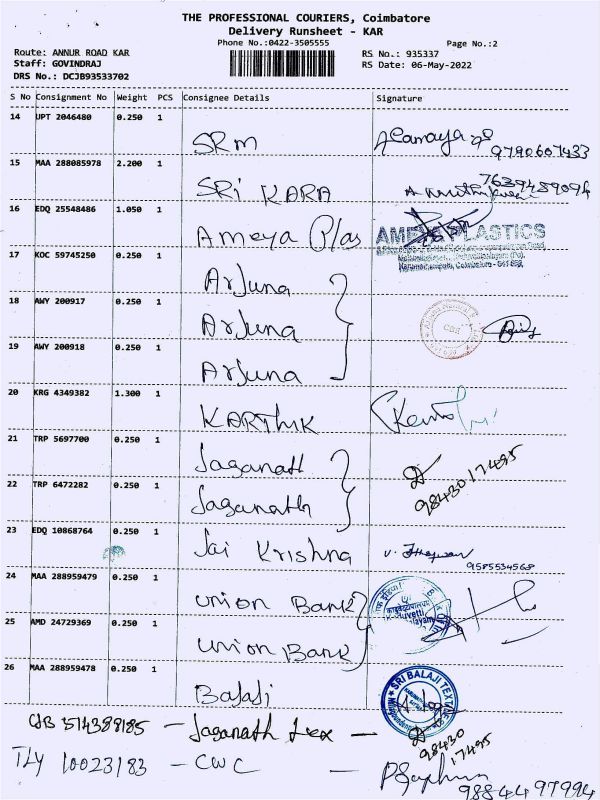 THE PROFESSIONAL COURIERS, Coimbatore
Delivery Runsheet - KAR
Phone No.:0422-3505555 Page No.:2
Route: ANNUR ROAD KAR RS No.: 935337
Staff: GOVINDRAJ RS Date: 06-May-2022
DRS No.: DCJB93533702
S No Consignment No Weight PCS Consignee Details Signature
14 UPT 2046480 0.250 1 SRM 9790607433
15 MAA 288085978 2.200 1 SRI KARA 7639489094
16 EDQ 25548486 1.050 1 Ameya Plas AMEYA PLASTICS
17 KOC 59745250 0.250 1 Arjuna
18 AWY 200917 0.250 1 Arjuna
19 AWY 200918 0.250 1 Arjuna
20 KRG 4349382 1.300 1 KARTHIK
21 TRP 5697700 0.250 1 Jaganath
22 TRP 6472282 0.250 1 Jaganath 98430 17495
23 EDQ 10868764 0.250 1 Jai Krishna 9585534568
24 MAA 288959479 0.250 1 union Bank
25 AMD 24729369 0.250 1 union Bank
26 MAA 288959478 0.250 1 Balaji SRI BALAJI TEXTILE
CJB 514389185 - Jaganath Tex - 98430 17495
TLY 10023183 - CWC - 98844 97994